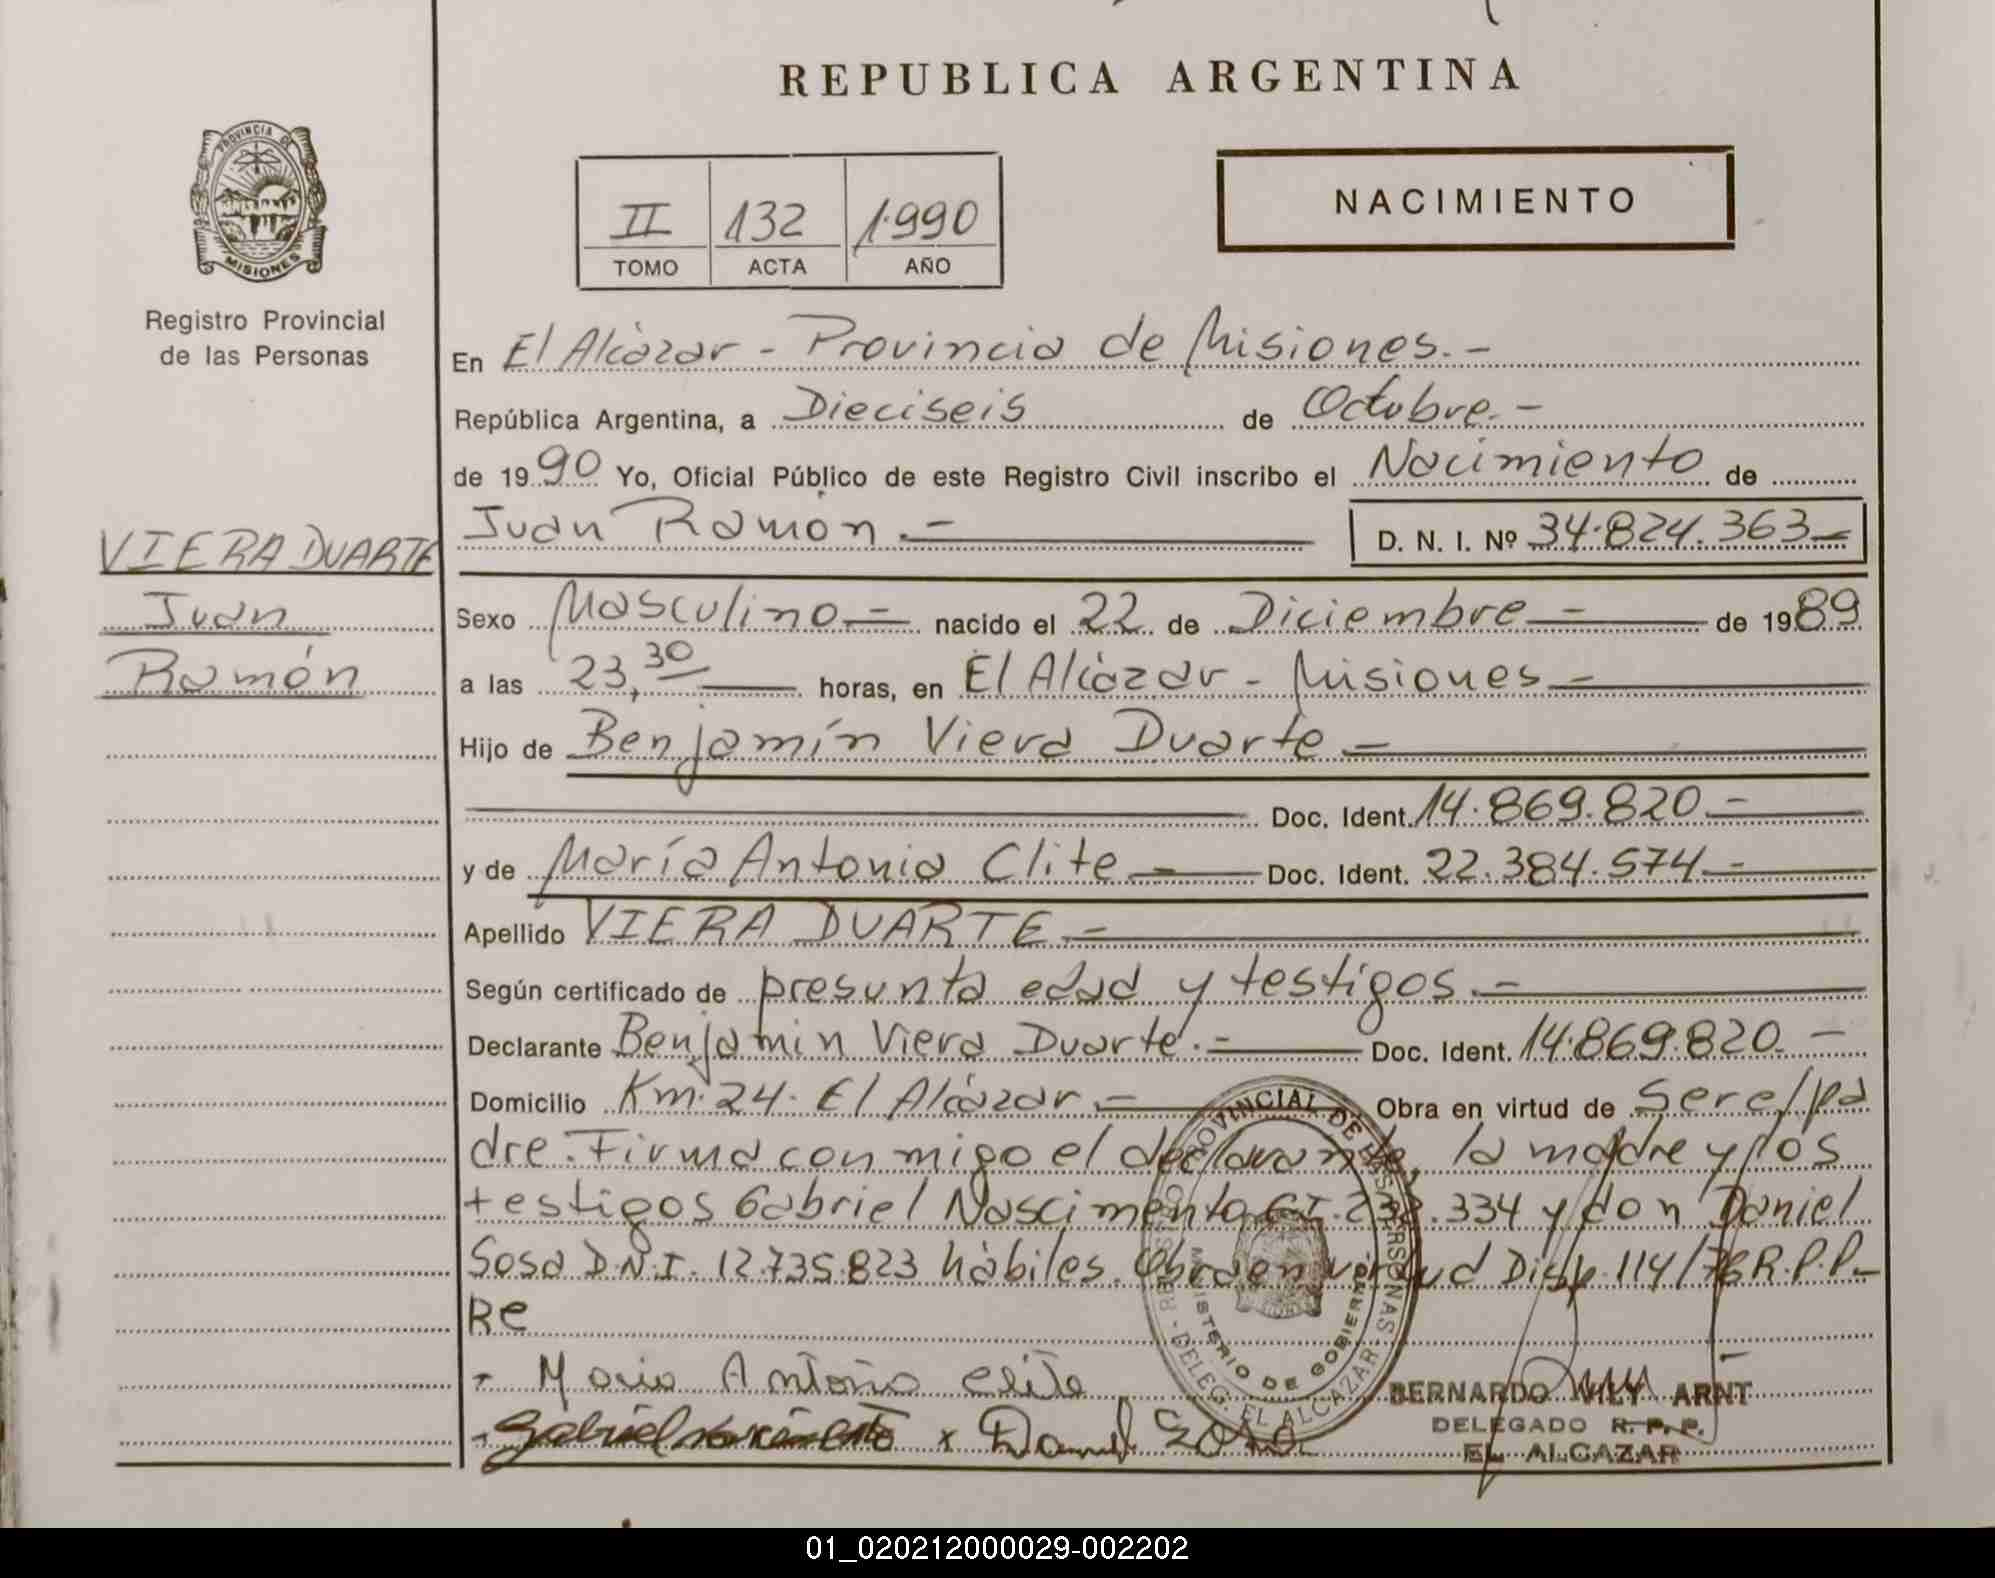 REPUBLICA ARGENTINA
PROVINCIA DE
MISIONES
Registro Provincial
de las Personas
II 132 1990
TOMO ACTA AÑO
NACIMIENTO
En El Alcázar - Provincia de Misiones.-
República Argentina, a Dieciseis de Octubre.-
de 1990 Yo, Oficial Público de este Registro Civil inscribo el Nacimiento de
Juan Ramón.- D. N. I. Nº 34.824.363-
VIERA DUARTE
Juan
Ramón
Sexo Masculino- nacido el 22 de Diciembre- de 1989
a las 23,30 horas, en El Alcázar - Misiones-
Hijo de Benjamín Viera Duarte-
Doc. Ident. 14.869.820.-
y de María Antonia Clite- Doc. Ident. 22.384.574-
Apellido VIERA DUARTE.-
Según certificado de presunta edad y testigos.-
Declarante Benjamin Viera Duarte.- Doc. Ident. 14.869.820.-
Domicilio Km.24. El Alcázar.- Obra en virtud de Ser el pa
dre. Firma conmigo el declarante, la madre y los
testigos Gabriel Nascimento C.I. .334 y don Daniel
Sosa D.N.I. 12.735.823 hábiles. Obra en virtud Disp. 114/78 R.P.P.-
Re
- Maria Antonia Clite
- Gabriel Nascimento x Daniel Sosa
REGISTRO PROVINCIAL DE LAS PERSONAS
MINISTERIO DE GOBIERNO
DELEG. EL ALCAZAR
BERNARDO WILY ARNT
DELEGADO R. P. P.
EL ALCAZAR
01_020212000029-002202